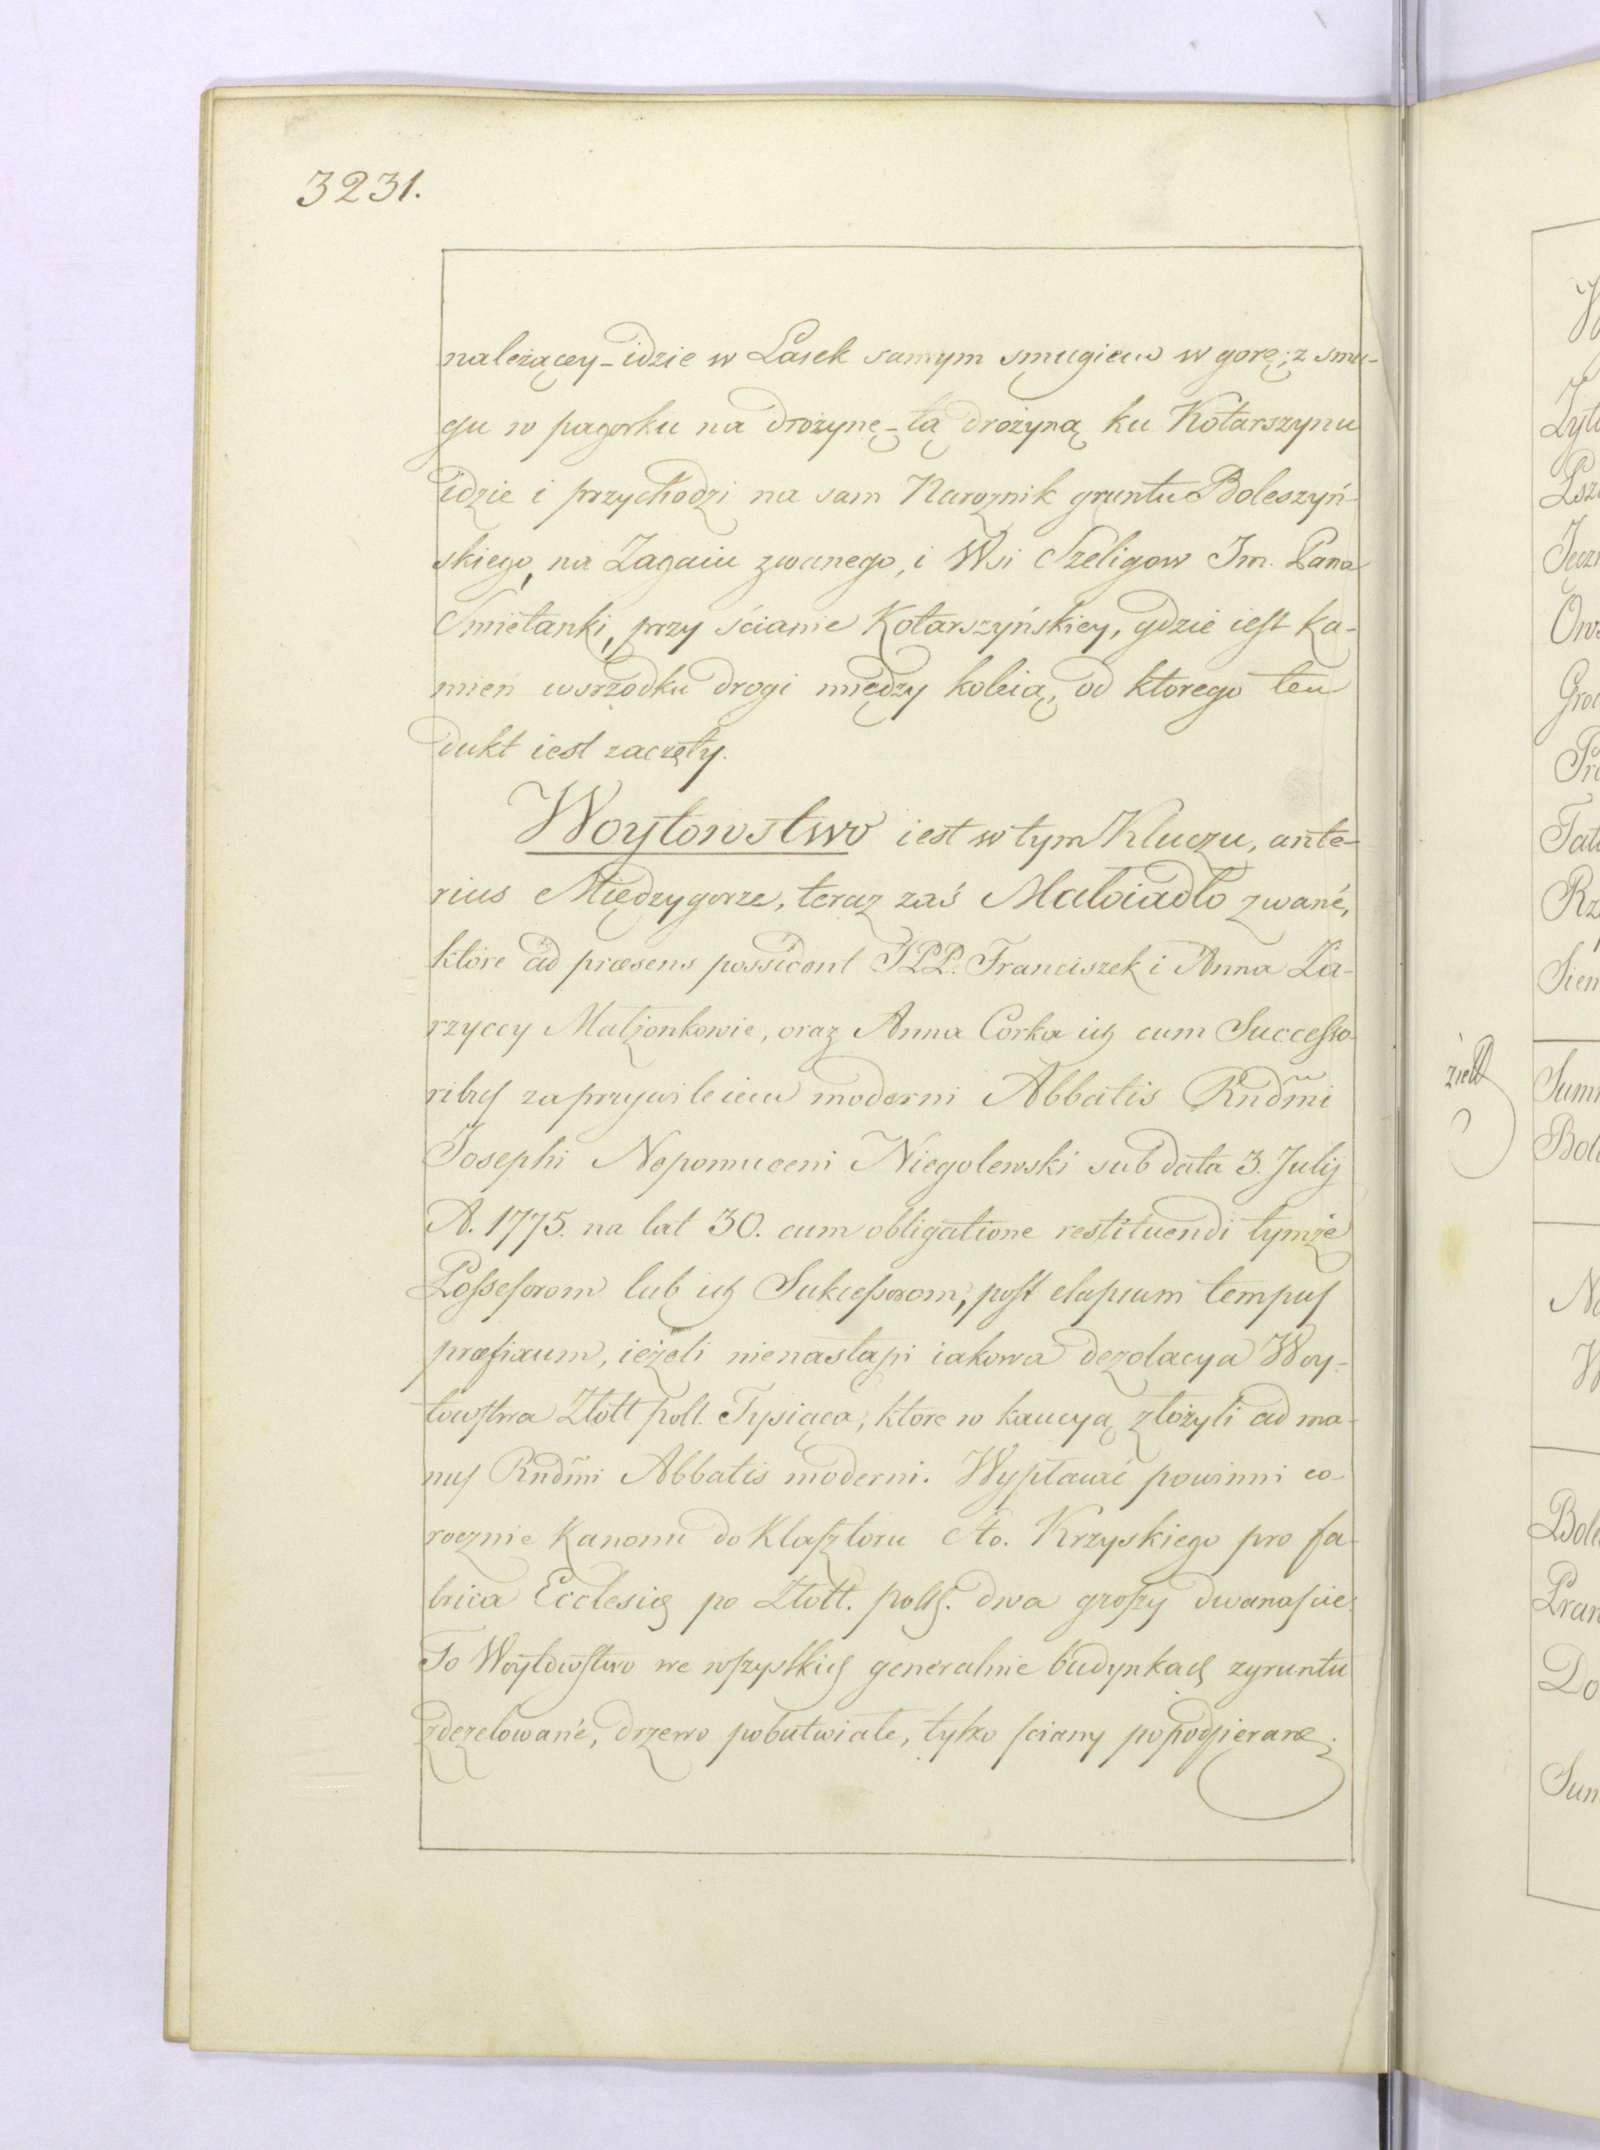 3231.
należącey - idzie w Lasek samym smugiem w gorę; z smu-
gu w pagorku na drożynę - tą drożyną ku Kotarszynu
idzie i przychodzi na sam Narożnik gruntu Boleszyń-
skiego, na Zagaiu zwanego, i Wsi Szeligow Jm. Pana
Smietanki, przy ścianie Kotarszyńskiey, gdzie iest ka-
mień wsrzodku drogi między koleią, od ktorego ten
dukt iest zaczęty.
Woytowstwo iest w tym Kluczu, ante-
rius Międzygorze, teraz zaś Małoiadło zwané,
ktore ad præsens possident JPP. Franciszek i Anna Za-
rzyccy Małżonkowie, oraz Anna Corka ich cum Successo-
ribus za przywileiem moderni Abbatis Rndmi
Josephi Nepomuceni Niegolewski sub data 3. Julij
A. 1775. na lat 30. cum obligatione restituendi tymże
Possessorom lub ich Sukcessorom, post elapsum tempus
præfixum, ieżeli nienastąpi iakowa dezolacya Woy-
towstwa Złott pol. Tysiąca, ktore w kaucyą złożyli ad ma-
nus Rndmi Abbatis moderni. Wypłacać powinni co
rocznie Kanonu do Klasztoru Sto. Krzyskiego pro fa-
brica Ecclesiæ po Złott. polsk. dwa groszy dwanaście.
To Woytowstwo we wszystkich generalnie budynkach zgruntu
zdezelowané, drzewo pobutwiałe, tylko ściany popodpierane.